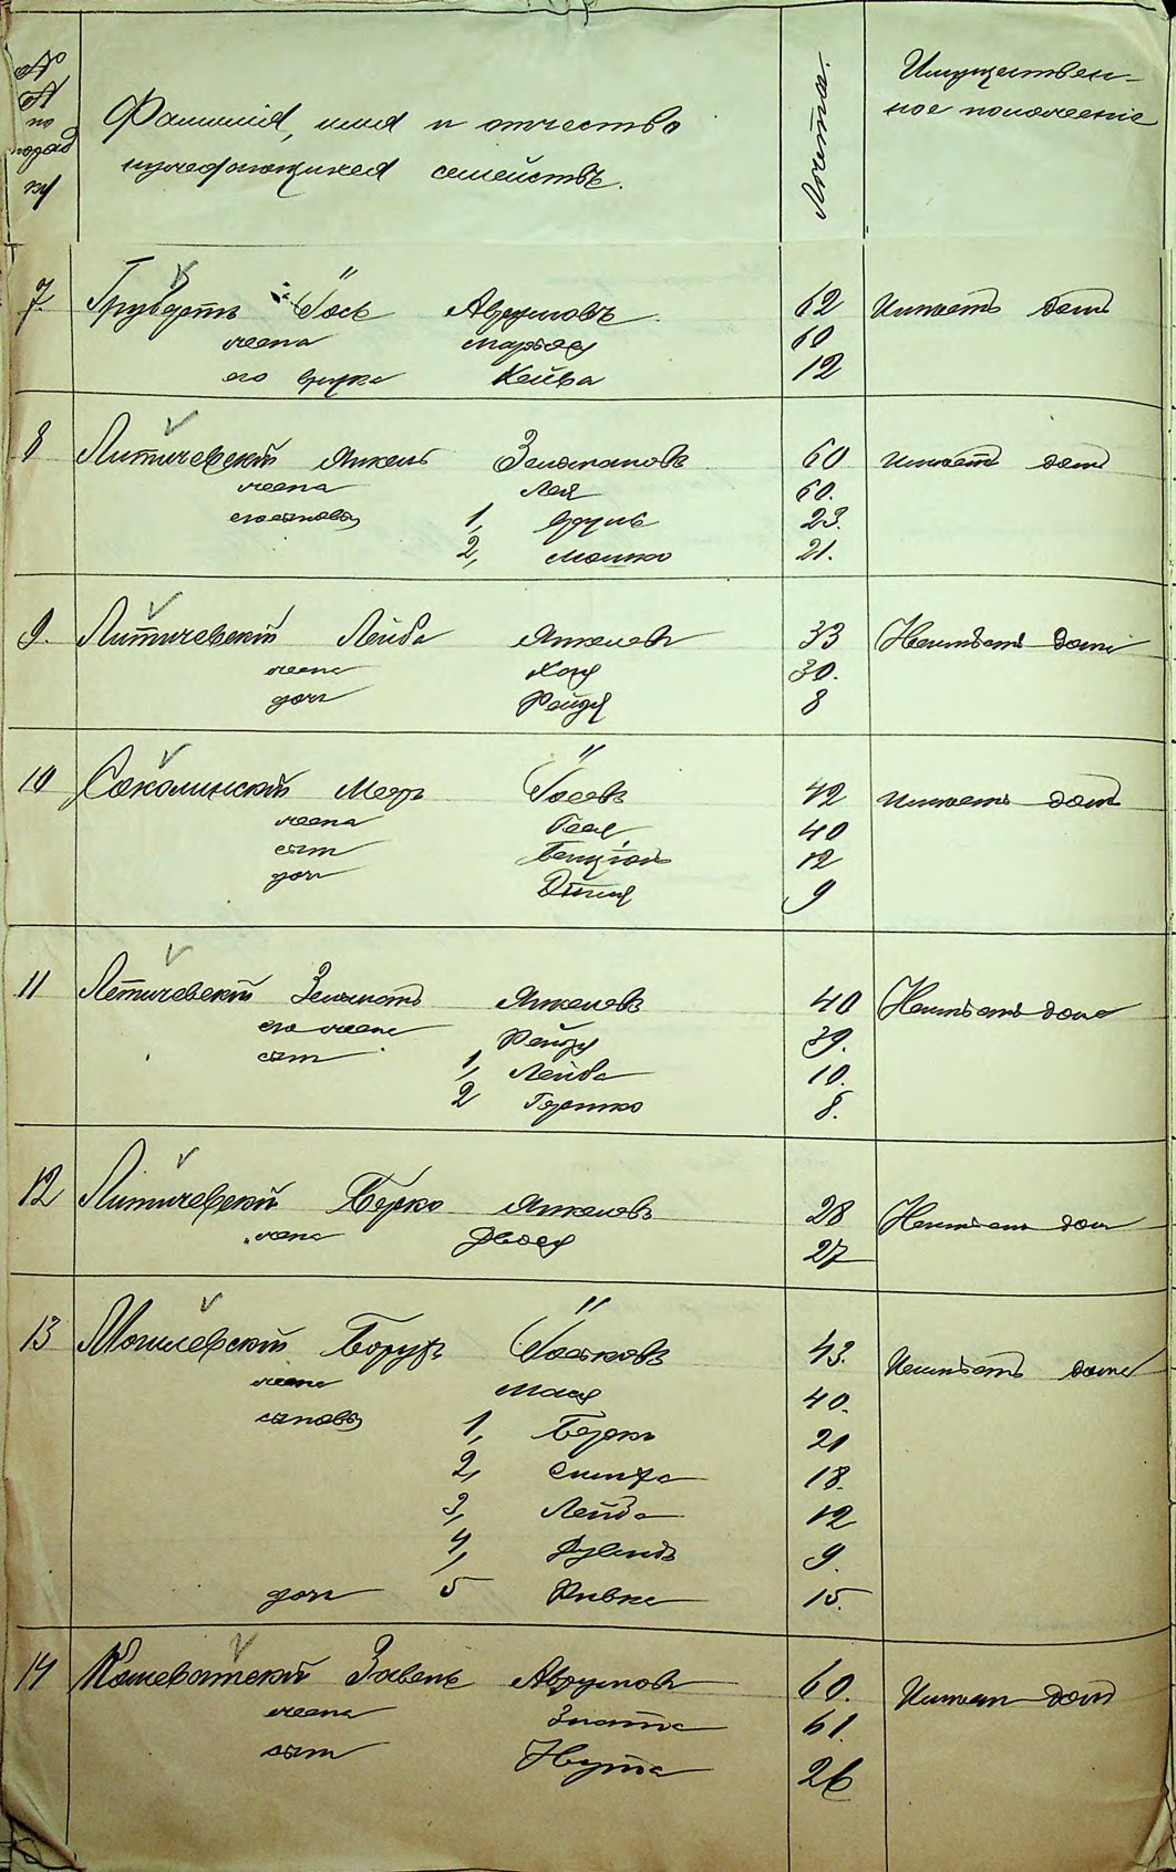 №
№
по
поряд
ку
Фамилія, имя и отчество
нуждающихся семействъ.
Лѣта.
Имуществен-
ное положеніе
7. Грувертъ Іось Аврумовъ 62 Имѣетъ домъ
жена Марьяс 60
его внука Хейва 12
8 Литичевскій Янкель Зельмановъ 60 имѣетъ домъ
жена Лея 60.
его сыновья 1, Врумъ 23.
2, Мошко 21.
9. Литичевскій Лейба Янкелевъ 33 Неимѣетъ дома
жена Хая 30.
дочь Рейзя 8
10 Соколинскій Меер Іосевъ 42 имѣетъ домъ
жена 40
сын Бенціонъ 12
дочь 9
11 Летичевскій Зельманъ Янкелевъ 40 Неимѣетъ дома
его жена Рейзя 39.
сын 1, Лейба 10.
2 Гершко 8.
12 Литичевскій Берко Янкелевъ 28 Неимѣетъ дома
жена Двося 27
13 Могилевскій Борухъ Іоськовъ 43. Неимѣетъ дома
жена Мася 40.
сыновья 1, Берко 21
2, Симха 18.
3, Лейба 12
4, Дувидъ 9.
дочь 5 Ривка 15.
14 Кошеватскій Зейвель Аврумовъ 60. Имѣет домъ
жена Злата 61.
сын Нута 26